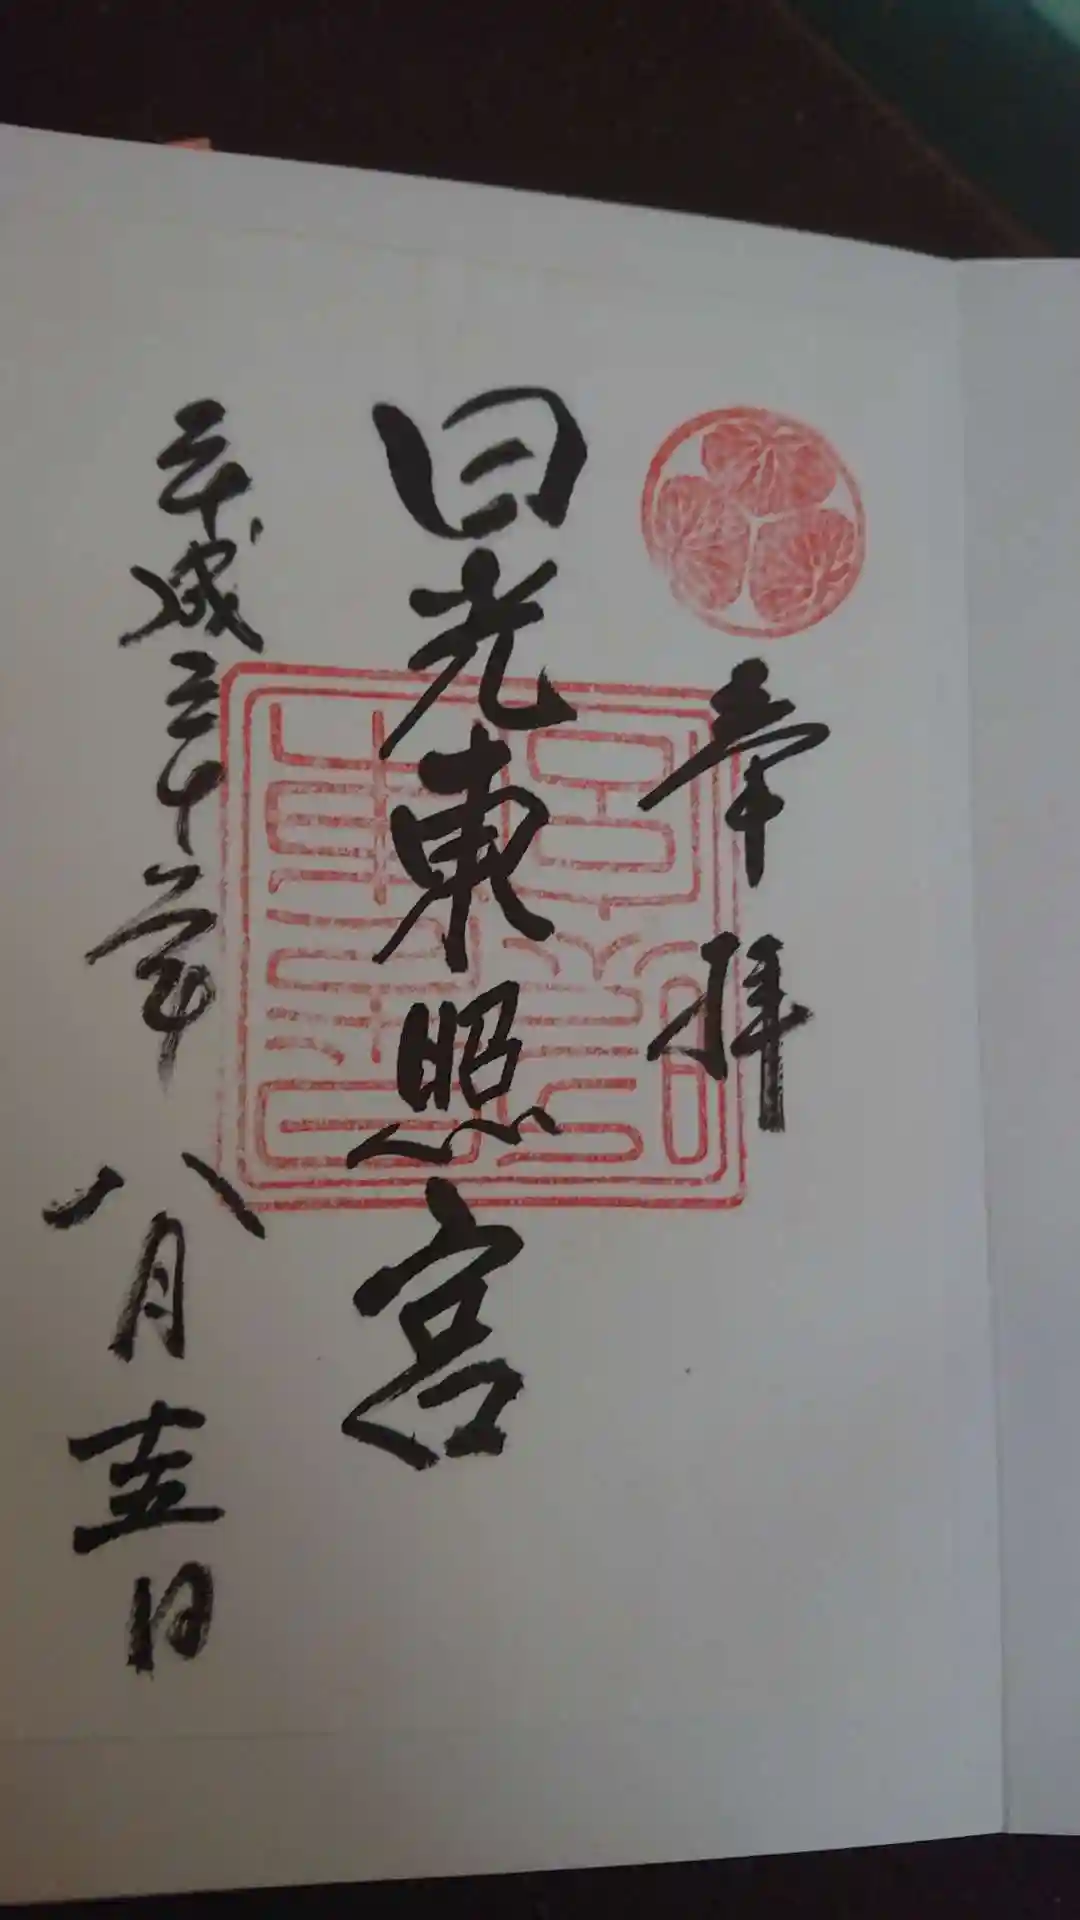 奉拝
日光東照宮
平成三十年八月十五日